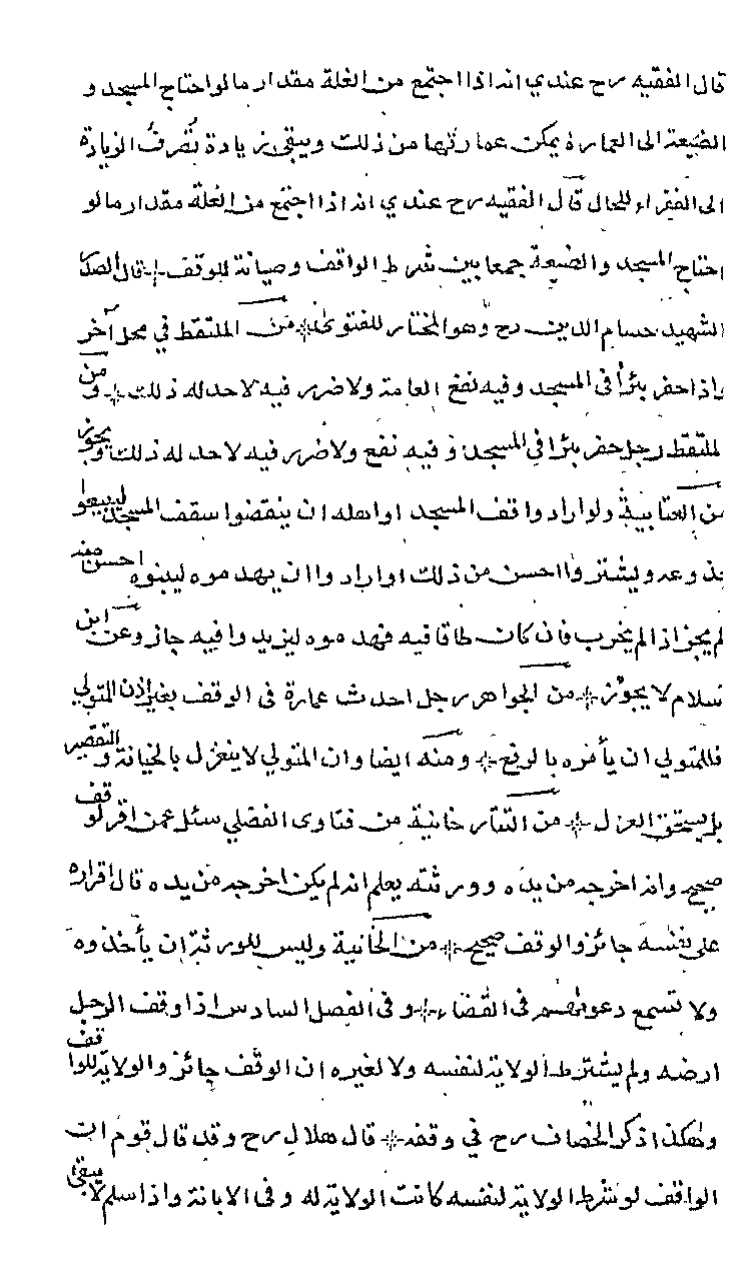 قال الفقيه رح عندي انه اذا اجتمع من الغلة مقدار ما لو احتاج المسجد و
الضيعة الى العمارة يمكن عمارتها من ذلك ويبقى زيادة تصرف الزيادة
الى الفقراء للحال قال الفقيه رح عندي انه اذا اجتمع من الغلة مقدار ما لو
احتاج المسجد والضيعة جمعا بين شرط الواقف وصيانة للوقف قال الصدر
الشهيد حسام الدين رح وهو المختار للفتوى من الملتقط في محل آخر
واذا حفر بئرا في المسجد وفيه نفع العامة ولا ضرر فيه لاحد له ذلك ومن
الملتقط رجل حفر بئرا في المسجد وفيه نفع ولا ضرر فيه لاحد له ذلك ويجوز
من العتابية ولو اراد واقف المسجد او اهله ان ينقضوا سقف المسجد ليبيعوا
جذوعه ويشتروا احسن من ذلك او ارادوا ان يهدموه ليبنوه احسن منه
لم يجز اذا لم يخرب فان كان طاقا فيه فهدموه ليزيدوا فيه جاز وعن ابن
سلام لا يجوز من الجواهر رجل احدث عمارة في الوقف بغير اذن المتولي
فللمتولي ان يأمره بالرفع ومنه ايضا وان المتولي لا ينعزل بالخيانة والتقصير
بل يستحق العزل من التتارخانية من فتاوى الفضلي سئل عمن اقر لوقف
صحيح وانه اخرجه من يده وورثته يعلم انه لم يكن اخرجه من يده قال اقراره
على نفسه جائز والوقف صحيح من الخانية وليس للورثة ان يأخذوه
ولا تسمع دعوتهم في القضاء وفي الفصل السادس اذا وقف الرجل
ارضه ولم يشترط الولاية لنفسه ولا لغيره ان الوقف جائز والولاية للواقف
وهكذا ذكر الخصاف رح في وقفه قال هلال رح وقد قال قوم ان
الواقف لو شرط الولاية لنفسه كانت الولاية له وفي الابانة واذا سلم لا يبقى